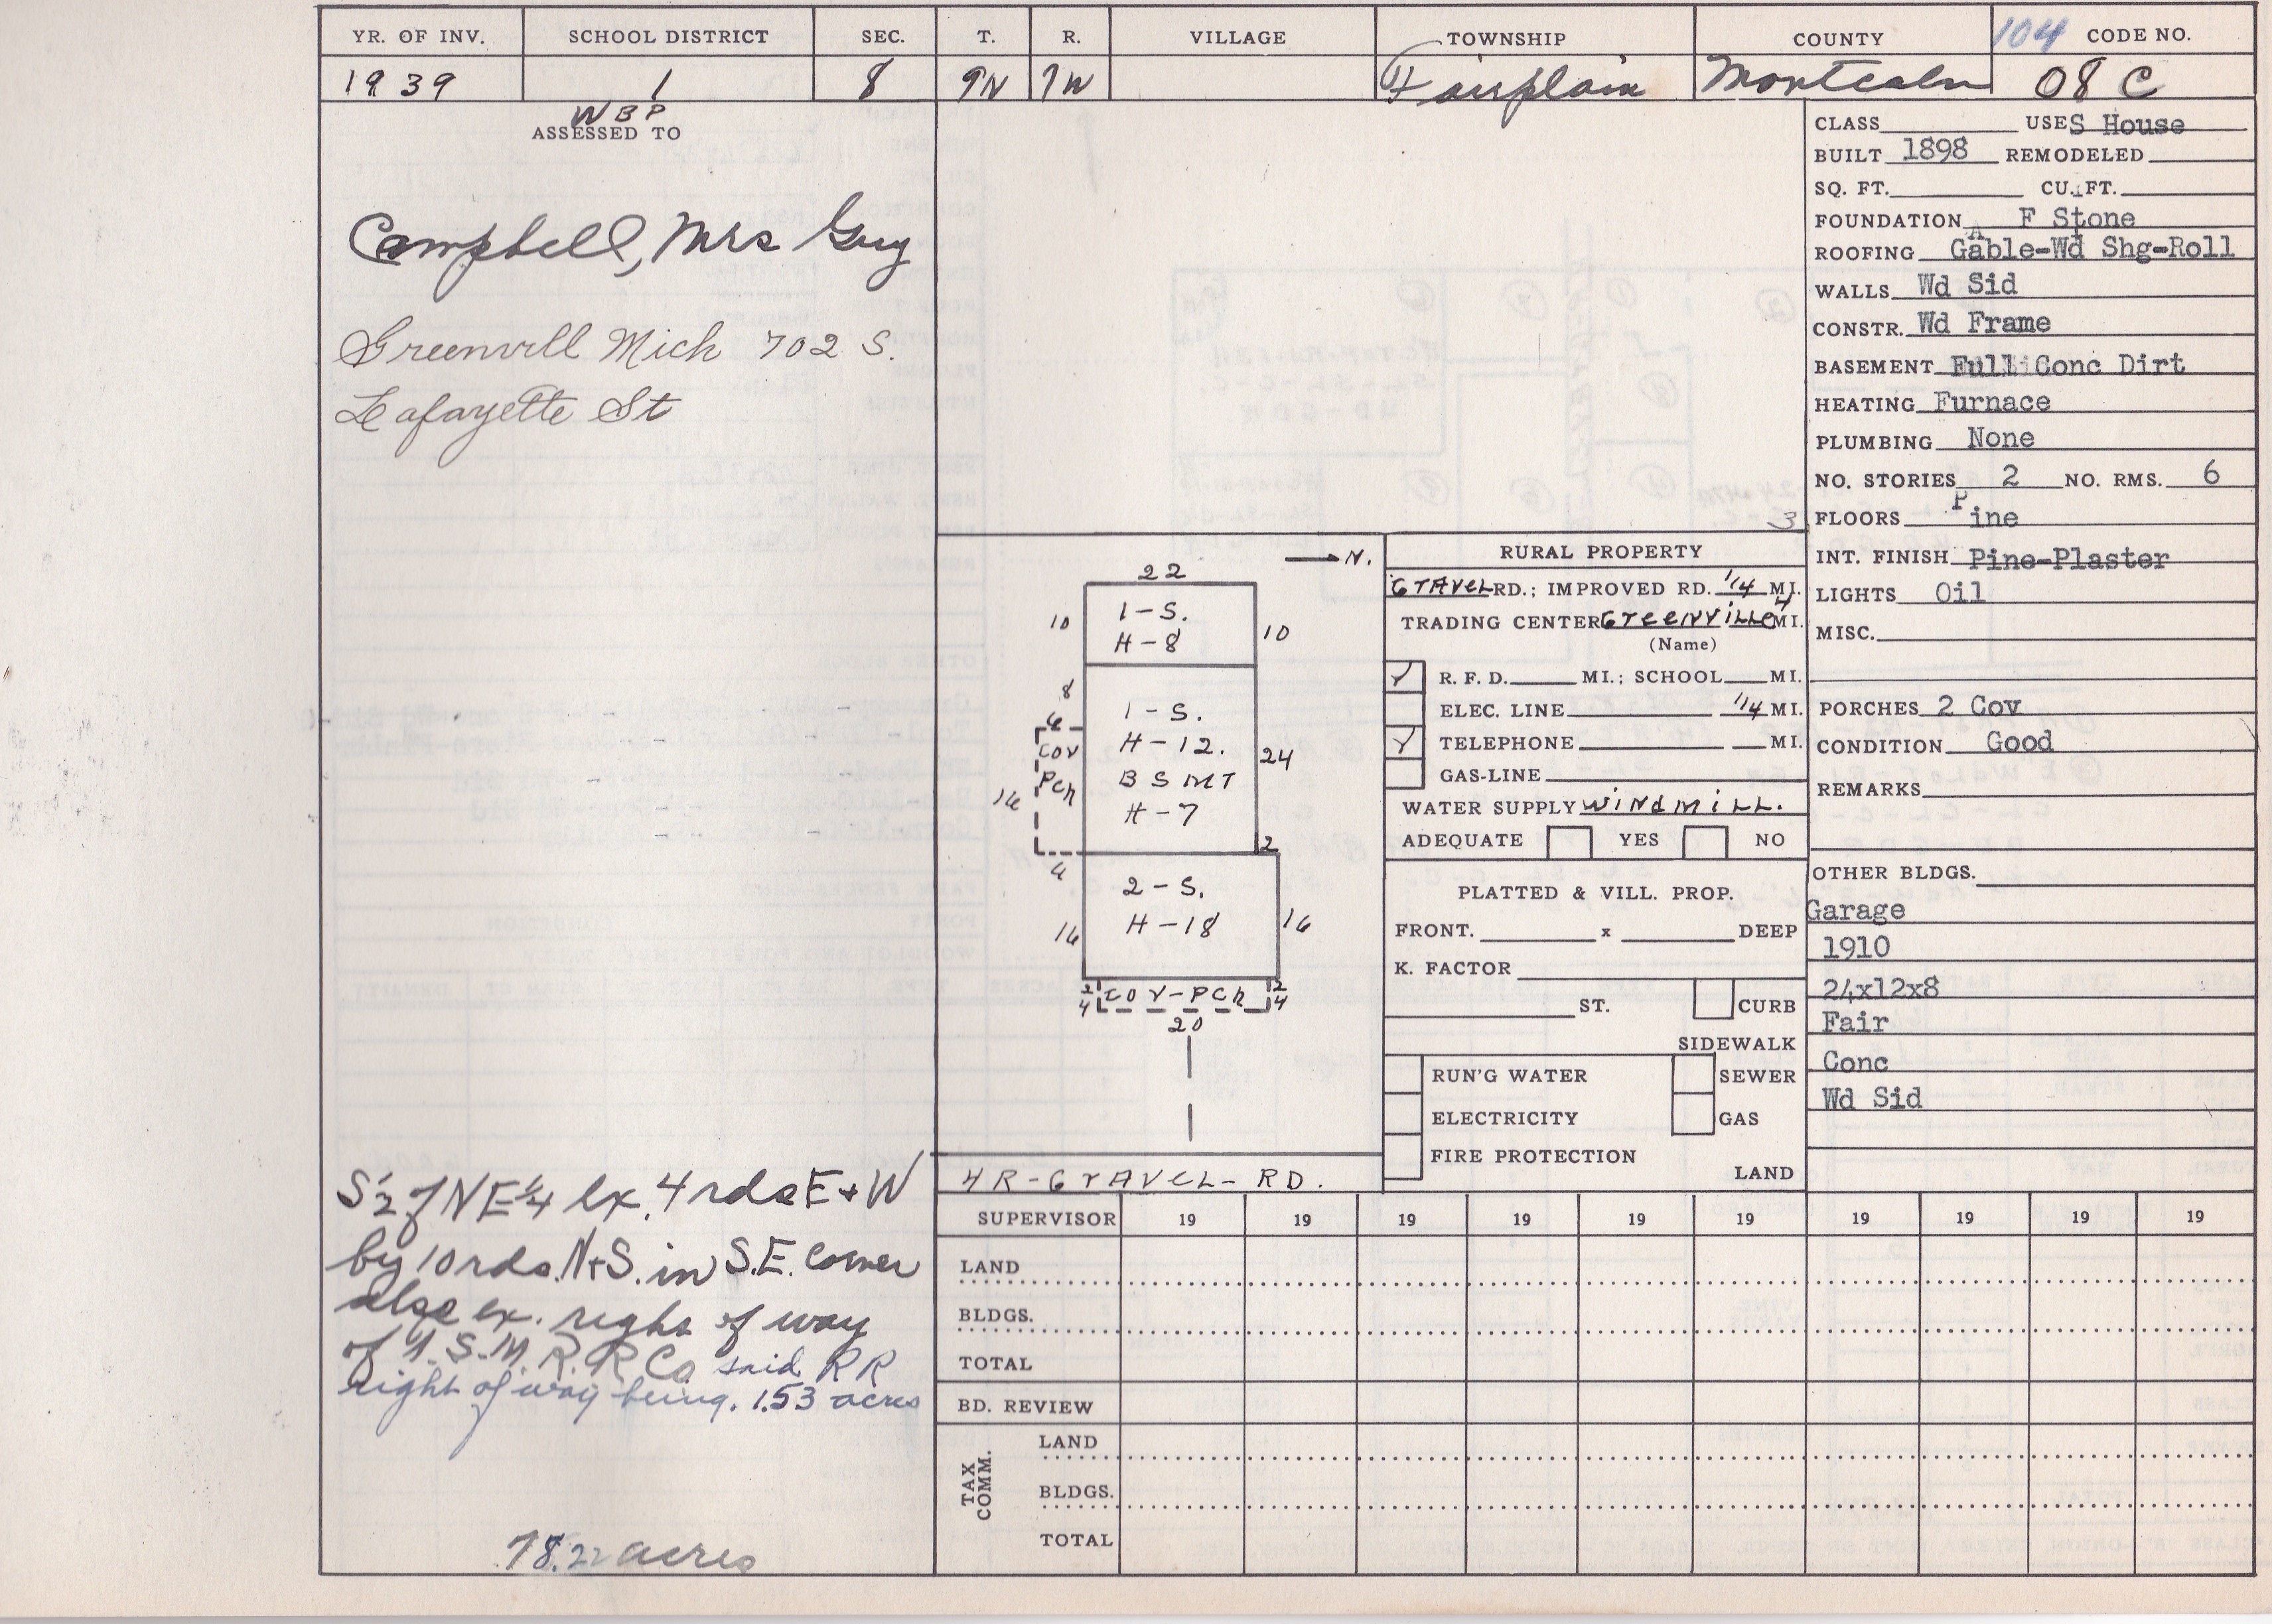 YR. OF INV. SCHOOL DISTRICT SEC. T. R. VILLAGE TOWNSHIP COUNTY 104 CODE NO.
1939 1 8 9N 7W Fairplain Montcalm 08 C
WBP
ASSESSED TO
Campbell, Mrs Guy
Greenvill Mich 702 S.
Lafayette St
S 1/2 of NE 1/4 ex. 4 rds E + W
by 10 rds. N+S. in S.E. corner
also ex. right of way
of T. S. M. R. R Co said R R
right of way being. 1.53 acres
78.22 acres
→ N.
22
1-S.
H-8
10
10
8
6
1-S.
H-12.
BSMT
H-7
COV
PCh
16
24
2
6
2-S.
H-18
16
16
2
4
COV-PCh
2
4
20
4R-GRAVEL-RD.
3
RURAL PROPERTY
GRAVEL RD.; IMPROVED RD. 1/4 MI.
TRADING CENTER GREENVILLE 4 MI.
(Name)
✓ R. F. D. MI.; SCHOOL MI.
ELEC. LINE 1/4 MI.
✓ TELEPHONE MI.
GAS-LINE
WATER SUPPLY WINDMILL.
ADEQUATE YES NO
PLATTED & VILL. PROP.
FRONT. x DEEP
K. FACTOR
ST. CURB
SIDEWALK
RUN'G WATER SEWER
ELECTRICITY GAS
FIRE PROTECTION
LAND
CLASS USE S House
BUILT 1898 REMODELED
SQ. FT. CU. FT.
FOUNDATION F Stone
ROOFING Gable-Wd Shg-Roll
WALLS Wd Sid
CONSTR. Wd Frame
BASEMENT Full Conc Dirt
HEATING Furnace
PLUMBING None
NO. STORIES 2 NO. RMS. 6
FLOORS Pine
INT. FINISH Pine-Plaster
LIGHTS Oil
MISC.
PORCHES 2 Cov
CONDITION Good
REMARKS
OTHER BLDGS.
Garage
1910
24x12x8
Fair
Conc
Wd Sid
SUPERVISOR 19 19 19 19 19 19 19 19 19 19
LAND
BLDGS.
TOTAL
BD. REVIEW
TAX COMM.
LAND
BLDGS.
TOTAL